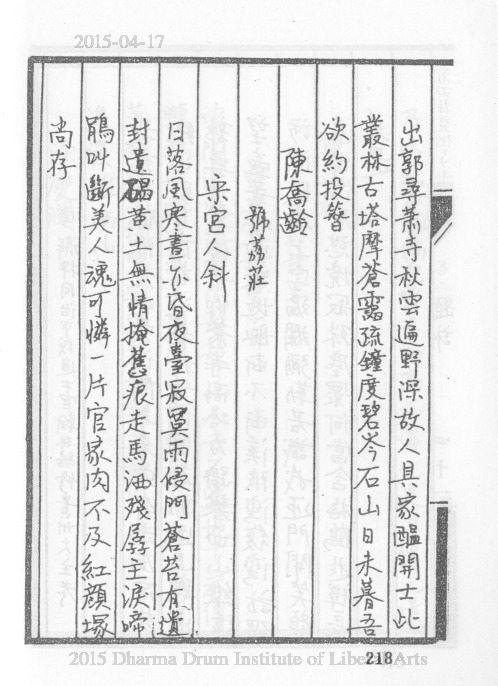 2015-04-17
出郭尋蕭寺秋雲遍野深故人具家醞開士此
叢林古塔摩蒼靄疏鐘度碧岑石山日未暮吾
欲約投簪
陳喬齡
號荔莊
宋宮人斜
日落風寒晝亦昏夜臺寂寞雨侵門蒼苔有遺
封遺碣黃土無情掩舊痕走馬洒殘孱主淚啼
鵑叫斷美人魂可憐一片官家肉不及紅顏塚
尚存
218
2015 Dharma Drum Institute of Liberal Arts